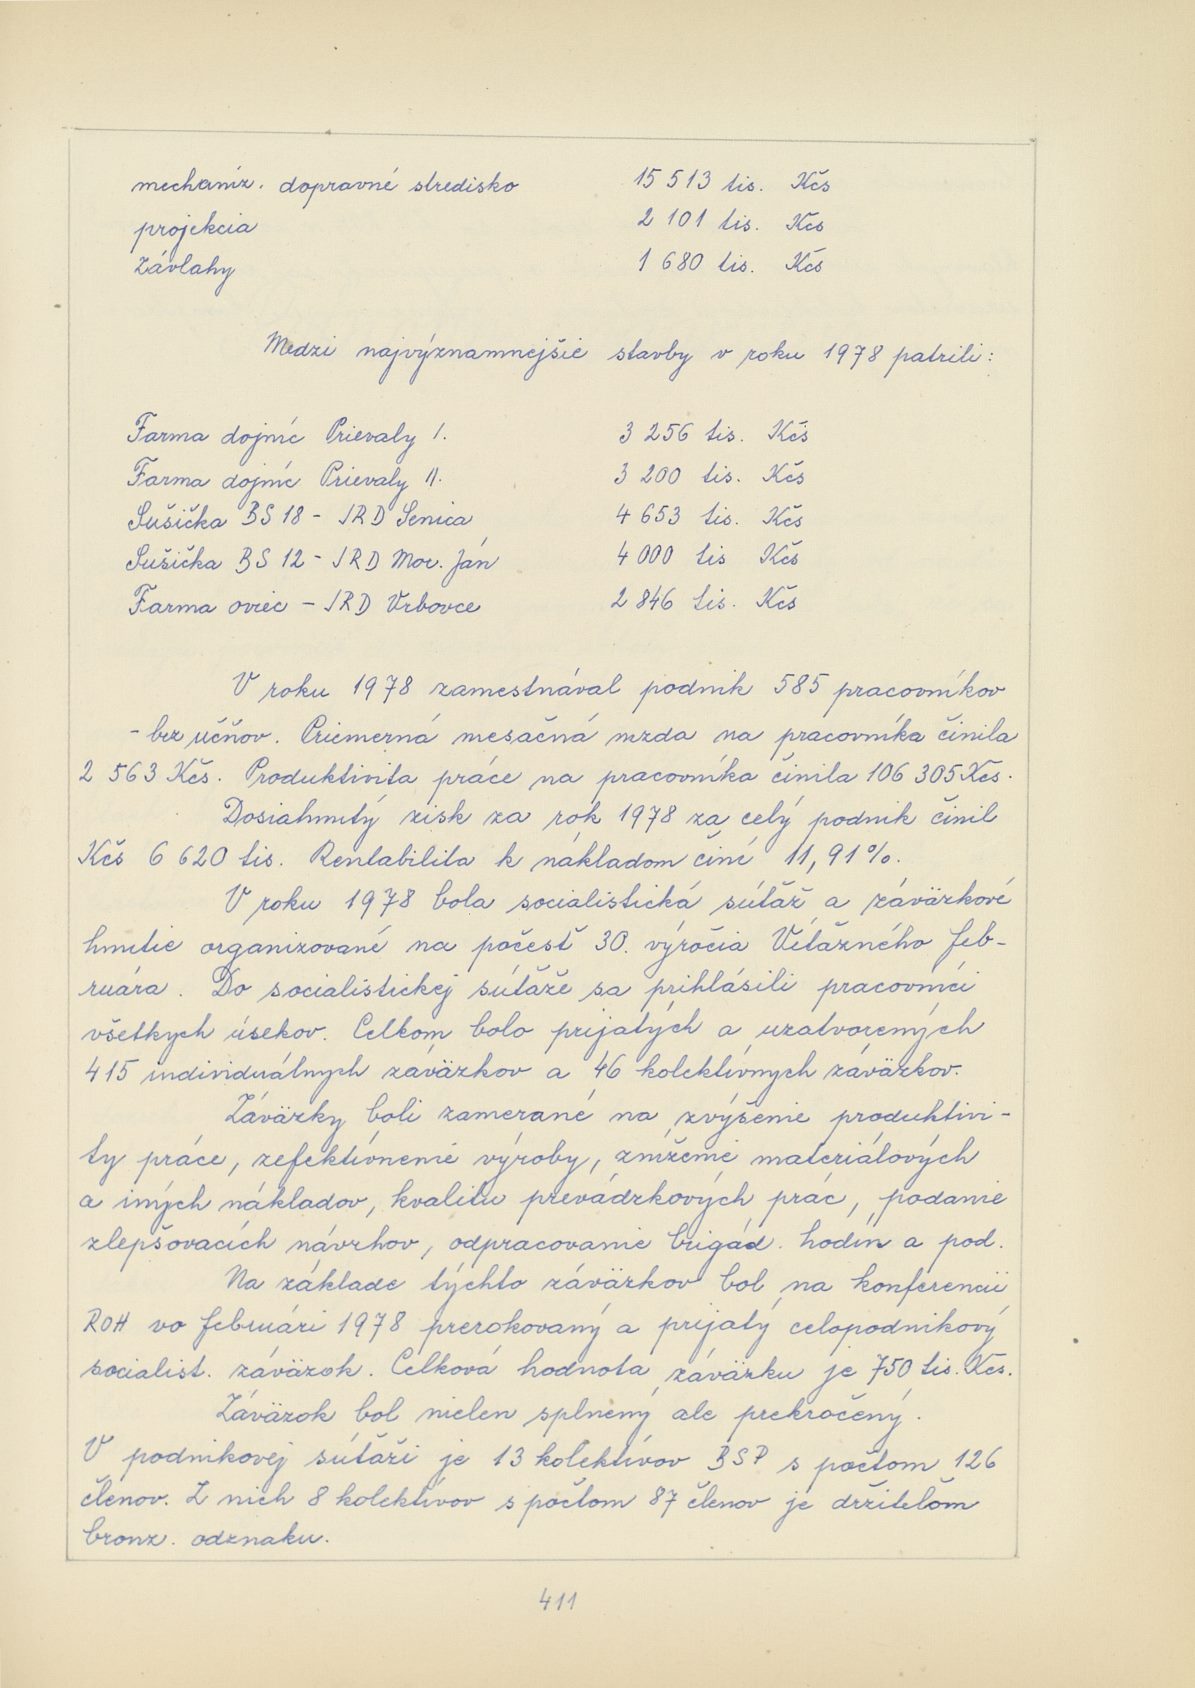 mechaniz. dopravné stredisko 15 513 tis. Kčs
projekcia 2 101 tis. Kčs
Závlahy 1 680 tis. Kčs
Medzi najvýznamnejšie stavby v roku 1978 patrili:
Farma dojníc Prievaly I. 3 256 tis. Kčs
Farma dojníc Prievaly II. 3 200 tis. Kčs
Sušička BS 18 - JRD Senica 4 653 tis. Kčs
Sušička BS 12 - JRD Mor. Ján 4 000 tis Kčs
Farma oviec - JRD Vrbovce 2 846 tis. Kčs
V roku 1978 zamestnával podnik 585 pracovníkov
- bez učňov. Priemerná mesačná mzda na pracovníka činila
2 563 Kčs. Produktivita práce na pracovníka činila 106 305 Kčs.
Dosiahnutý zisk za rok 1978 za celý podnik činil
Kčs 6 620 tis. Rentabilita k nákladom činí 11,91%.
V roku 1978 bola socialistická súťaž a záväzkové
hnutie organizované na počesť 30. výročia Víťazného feb-
ruára. Do socialistickej súťaže sa prihlásili pracovníci
všetkych úsekov. Celkom bolo prijatých a uzatvorených
415 individuálnych záväzkov a 46 kolektívnych záväzkov.
Záväzky boli zamerané na zvýšenie produktivi-
ty práce, zefektívnenie výroby, zníženie materiálových
a iných nákladov, kvalitu prevádzkových prác, podanie
zlepšovacích návrhov, odpracovanie brigád. hodín a pod.
Na základe týchto záväzkov bol na konferencii
ROH vo februári 1978 prerokovaný a prijatý celopodnikový
socialist. záväzok. Celková hodnota záväzku je 750 tis. Kčs.
Záväzok bol nielen splnený ale prekročený.
V podnikovej súťaži je 13 kolektívov BSP s počtom 126
členov. Z nich 8 kolektívov s počtom 87 členov je držiteľom
bronz. odznaku.
411